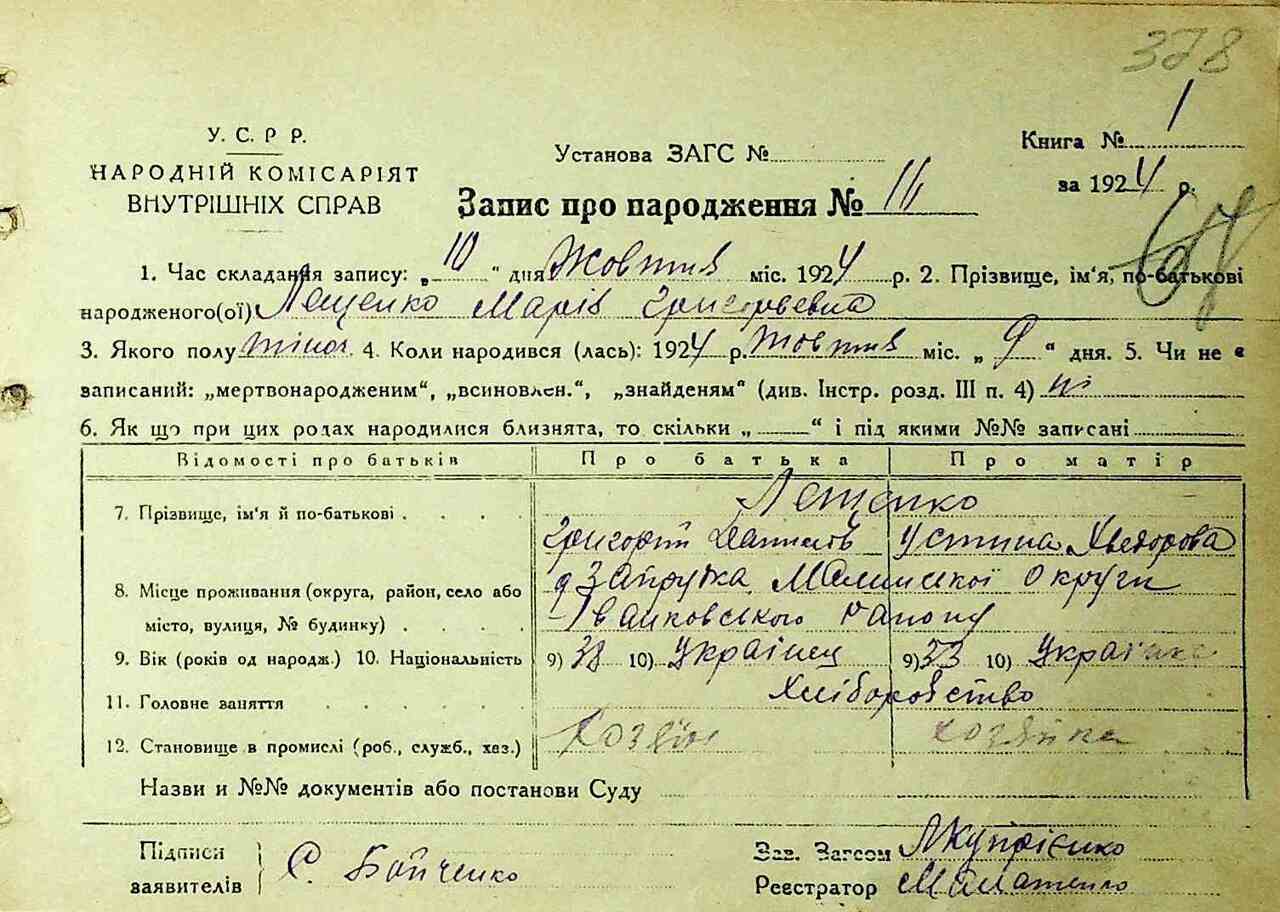 378
У. С. Р Р.
НАРОДНІЙ КОМІСАРІЯТ
ВНУТРІШНІХ СПРАВ
Установа ЗАГС №
Книга № 1
за 1924 р.
Запис про народження № 111
67
1. Час складання запису: „10“ дня Жовтня міс. 1924 р. 2. Прізвище, ім'я, по-батькові
народженого(ої) Лещенко Марія Григорьевна
3. Якого полу жіноч. 4. Коли народився (лась): 1924 р. Жовтня міс. „9“ дня. 5. Чи не є
записаний: „мертвонародженим“, „всиновлен.“, „знайденям“ (див. Інстр. розд. III п. 4) ні
6. Як що при цих родах народилися близнята, то скільки „ “ і під якими №№ записані
Відомості про батьків Про батька Про матір
7. Прізвище, ім'я й по-батькові . . . . Лещенко
Григорій Данилов Устина Хведорова
8. Місце проживання (округа, район, село або Запрудка Малинскої Округи
місто, вулиця, № будинку) . . . . Іванковського району
9. Вік (років од народж.) 10. Національність 9) 38 10) Українец 9) 33 10) Українка
11. Головне заняття . . . . . . Хліборобство
12. Становище в промислі (роб., служб., хез.) Хозяїн хозяйка
Назви и №№ документів або постанови Суду
Підписи
заявителів
С. Бойченко
Зав. Загсом Купрієнко
Реєстратор